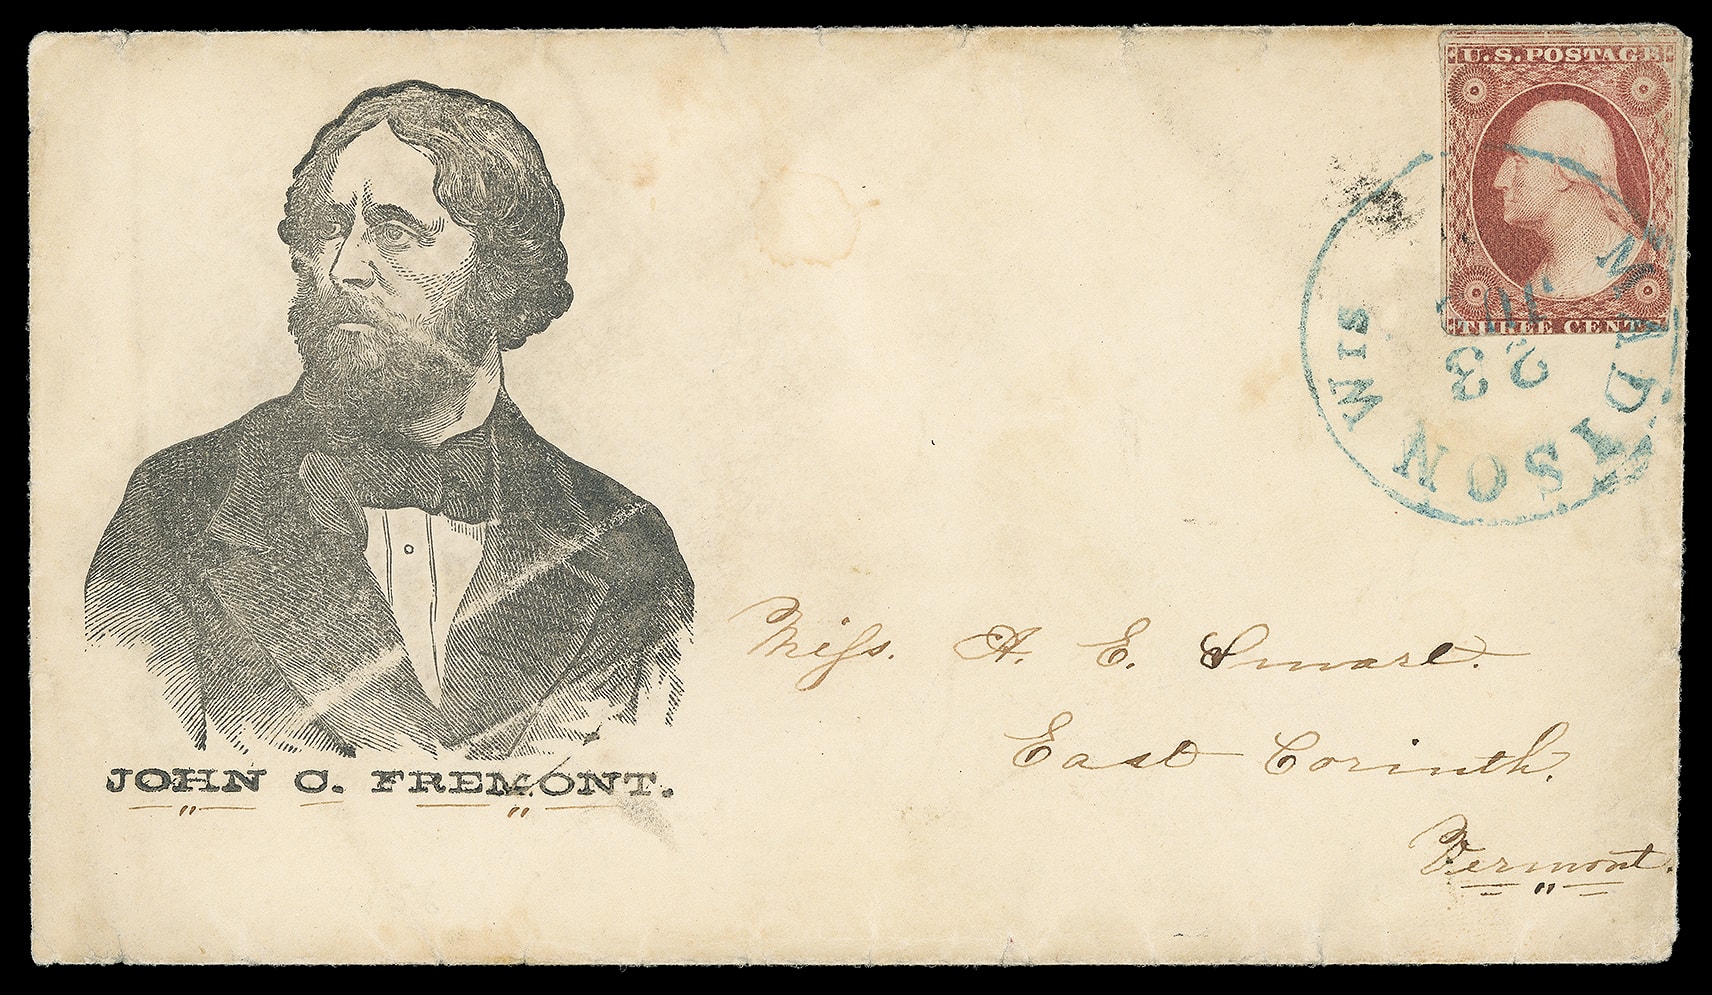 U.S. POSTAGE
THREE CENTS
MADISON WIS
JUL
23
JOHN C. FREMONT.
Miss. A. E. Smart.
East Corinth.
Vermont.